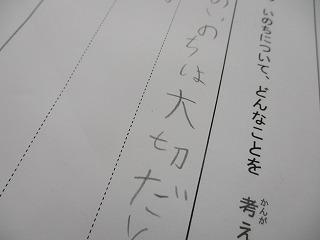 いのちについて、どんなことを 考え
かんが
いのちは大切だ